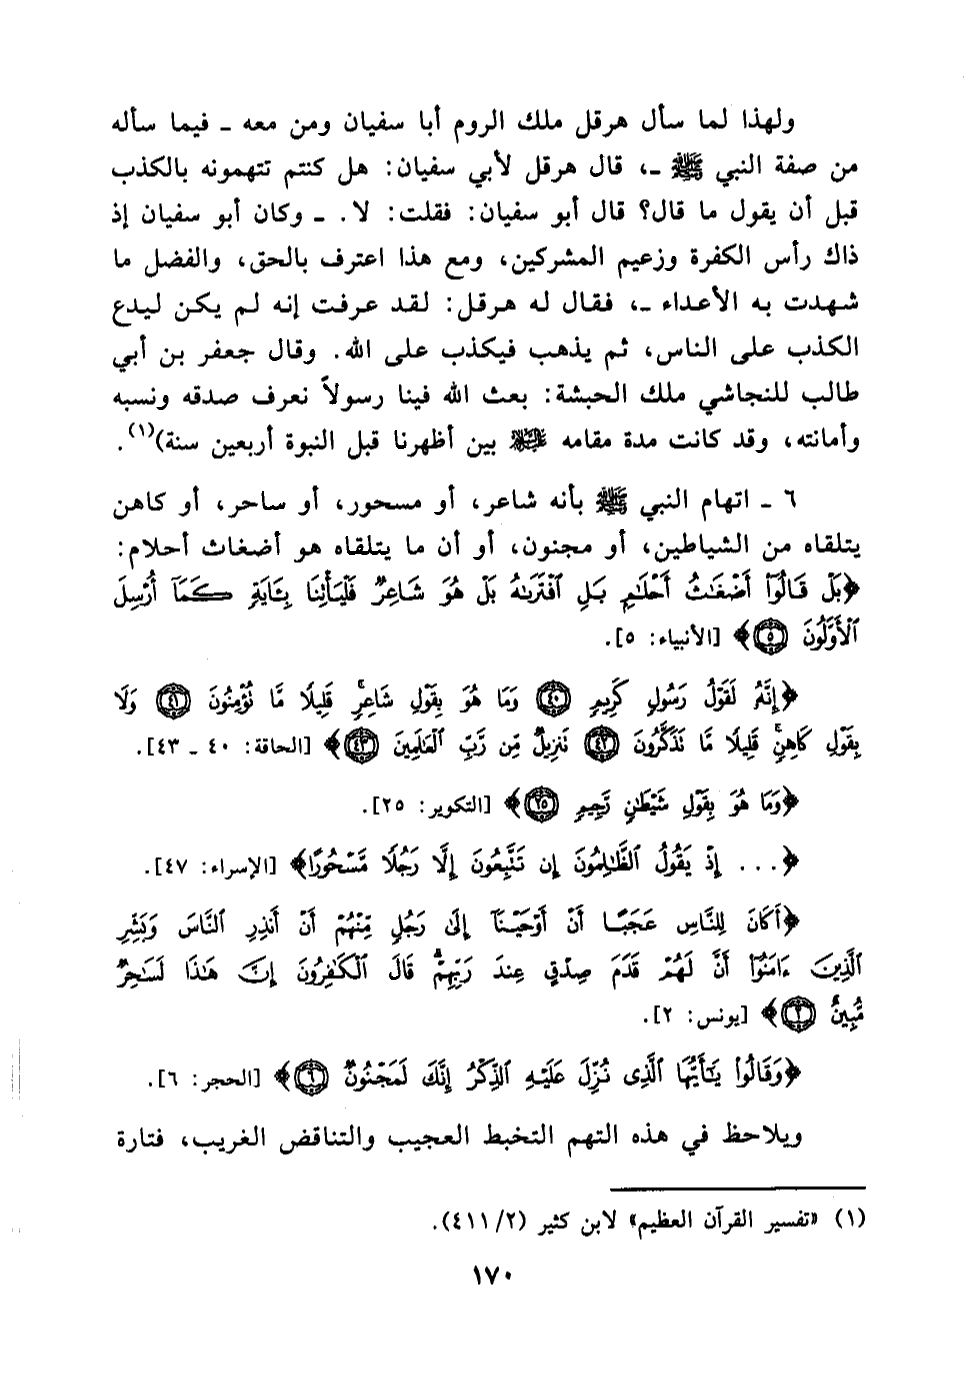 ولهذا لما سأل هرقل ملك الروم أبا سفيان ومن معه ـ فيما سأله
من صفة النبي ﷺ ـ، قال هرقل لأبي سفيان: هل كنتم تتهمونه بالكذب
قبل أن يقول ما قال؟ قال أبو سفيان: فقلت: لا. ـ وكان أبو سفيان إذ
ذاك رأس الكفرة وزعيم المشركين، ومع هذا اعترف بالحق، والفضل ما
شهدت به الأعداء ـ، فقال له هرقل: لقد عرفت إنه لم يكن ليدع
الكذب على الناس، ثم يذهب فيكذب على الله. وقال جعفر بن أبي
طالب للنجاشي ملك الحبشة: بعث الله فينا رسولاً نعرف صدقه ونسبه
وأمانته، وقد كانت مدة مقامه ﷺ بين أظهرنا قبل النبوة أربعين سنة)(١).
٦ ـ اتهام النبي ﷺ بأنه شاعر، أو مسحور، أو ساحر، أو كاهن
يتلقاه من الشياطين، أو مجنون، أو أن ما يتلقاه هو أضغاث أحلام:
﴿بَلْ قَالُوٓا۟ أَضْغَٰثُ أَحْلَٰمٍۭ بَلِ ٱفْتَرَىٰهُ بَلْ هُوَ شَاعِرٌ فَلْيَأْتِنَا بِـَٔايَةٍ كَمَآ أُرْسِلَ
ٱلْأَوَّلُونَ ۝٥﴾ [الأنبياء: ٥].
﴿إِنَّهُۥ لَقَوْلُ رَسُولٍ كَرِيمٍ ۝٤٠ وَمَا هُوَ بِقَوْلِ شَاعِرٍ ۚ قَلِيلًا مَّا تُؤْمِنُونَ ۝٤١ وَلَا
بِقَوْلِ كَاهِنٍ ۚ قَلِيلًا مَّا تَذَكَّرُونَ ۝٤٢ تَنزِيلٌ مِّن رَّبِّ ٱلْعَٰلَمِينَ ۝٤٣﴾ [الحاقة: ٤٠ ـ ٤٣].
﴿وَمَا هُوَ بِقَوْلِ شَيْطَٰنٍ رَّجِيمٍ ۝٢٥﴾ [التكوير: ٢٥].
﴿... إِذْ يَقُولُ ٱلظَّٰلِمُونَ إِن تَتَّبِعُونَ إِلَّا رَجُلًا مَّسْحُورًا﴾ [الإسراء: ٤٧].
﴿أَكَانَ لِلنَّاسِ عَجَبًا أَنْ أَوْحَيْنَآ إِلَىٰ رَجُلٍ مِّنْهُمْ أَنْ أَنذِرِ ٱلنَّاسَ وَبَشِّرِ
ٱلَّذِينَ ءَامَنُوٓا۟ أَنَّ لَهُمْ قَدَمَ صِدْقٍ عِندَ رَبِّهِمْ ۗ قَالَ ٱلْكَٰفِرُونَ إِنَّ هَٰذَا لَسَٰحِرٌ
مُّبِينٌ ۝٢﴾ [يونس: ٢].
﴿وَقَالُوا۟ يَٰٓأَيُّهَا ٱلَّذِى نُزِّلَ عَلَيْهِ ٱلذِّكْرُ إِنَّكَ لَمَجْنُونٌ ۝٦﴾ [الحجر: ٦].
ويلاحظ في هذه التهم التخبط العجيب والتناقض الغريب، فتارة
(١) «تفسير القرآن العظيم» لابن كثير (٤١١/٢).
١٧٠